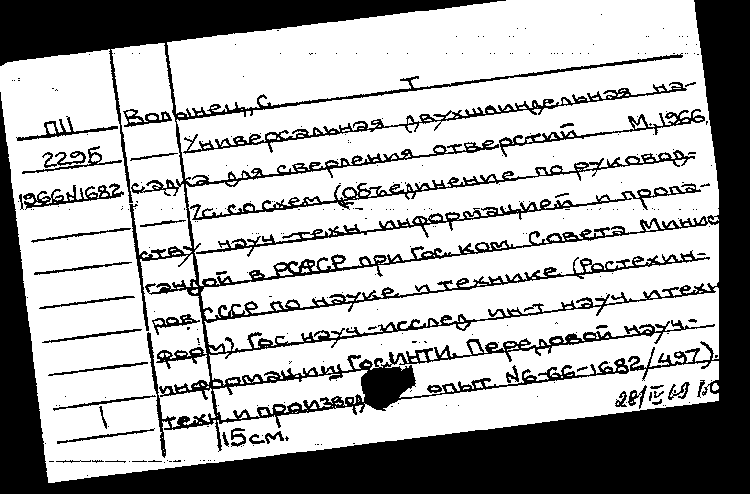 П11
2295
1966N1682
Волынец, С. Т
Универсальная двухшпиндельная на-
садка для сверления отверстий. М., 1966.
7с. со схем (Объединение по руковод-
ству науч.-техн. информацией и пропа-
гандой в РСФСР при Гос. ком. Совета Минист
ров СССР по науке и технике (Ростехин-
форм). Гос науч.-исслед ин-т науч. и техн
информации ГосИНТИ. Передовой науч.-
техн. и производ опыт. N6-66-1682/497).
15 см.
28/IV 69